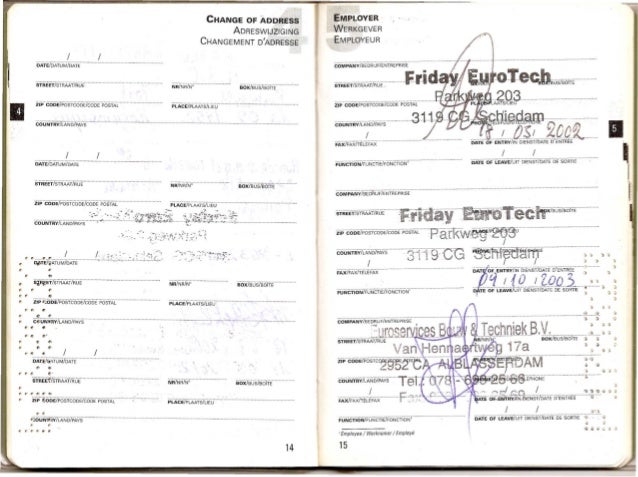 CHANGE OF ADDRESS
ADRESWIJZIGING
CHANGEMENT D'ADRESSE
/ /
DATE/DATUM/DATE
STREET/STRAAT/RUE NR/NR/N° BOX/BUS/BOÎTE
ZIP CODE/POSTCODE/CODE POSTAL PLACE/PLAATS/LIEU
COUNTRY/LAND/PAYS
4
/ /
DATE/DATUM/DATE
STREET/STRAAT/RUE NR/NR/N° BOX/BUS/BOÎTE
ZIP CODE/POSTCODE/CODE POSTAL PLACE/PLAATS/LIEU
COUNTRY/LAND/PAYS
/ /
DATE/DATUM/DATE
STREET/STRAAT/RUE NR/NR/N° BOX/BUS/BOÎTE
ZIP CODE/POSTCODE/CODE POSTAL PLACE/PLAATS/LIEU
COUNTRY/LAND/PAYS
/ /
DATE/DATUM/DATE
STREET/STRAAT/RUE NR/NR/N° BOX/BUS/BOÎTE
ZIP CODE/POSTCODE/CODE POSTAL PLACE/PLAATS/LIEU
COUNTRY/LAND/PAYS
14
EMPLOYER
WERKGEVER
EMPLOYEUR
COMPANY/BEDRIJF/ENTREPRISE
Friday EuroTech
STREET/STRAAT/RUE
Parkweg 203
ZIP CODE/POSTCODE/CODE POSTAL
3119 CG Schiedam
COUNTRY/LAND/PAYS
18 / 03 / 2002
FAX/FAX/TELEFAX DATE OF ENTRY/IN DIENST/DATE D'ENTRÉE
5
FUNCTION/FUNCTIE/FONCTION* DATE OF LEAVE/UIT DIENST/DATE DE SORTIE
COMPANY/BEDRIJF/ENTREPRISE
Friday EuroTech
STREET/STRAAT/RUE
Parkweg 203
ZIP CODE/POSTCODE/CODE POSTAL
3119 CG Schiedam
COUNTRY/LAND/PAYS
FAX/FAX/TELEFAX DATE OF ENTRY/IN DIENST/DATE D'ENTRÉE
04 / 10 / 2003
FUNCTION/FUNCTIE/FONCTION* DATE OF LEAVE/UIT DIENST/DATE DE SORTIE
COMPANY/BEDRIJF/ENTREPRISE
Euroservices Bouw & Techniek B.V.
STREET/STRAAT/RUE BOX/BUS/BOÎTE
Van Hennaertweg 17a
ZIP CODE/POSTCODE/CODE POSTAL
2952 CA ALBLASSERDAM
COUNTRY/LAND/PAYS
Tel.: 078 - 699 25 66
FAX/FAX/TELEFAX DATE OF ENTRY/IN DIENST/DATE D'ENTRÉE
FUNCTION/FUNCTIE/FONCTION* DATE OF LEAVE/UIT DIENST/DATE DE SORTIE
*Employee / Werknemer / Employé
15